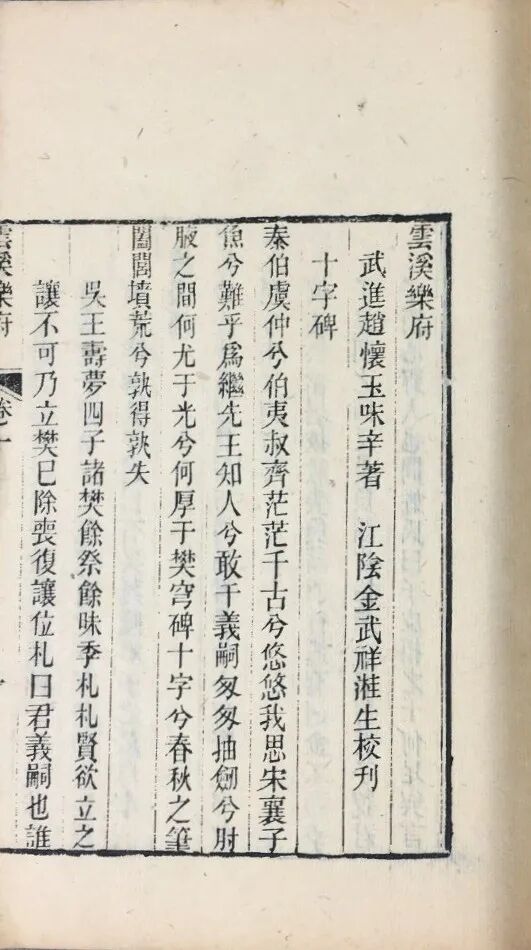 雲溪樂府
武進趙懷玉味辛著　江陰金武祥溎生校刊
十字碑
泰伯虞仲兮伯夷叔齊茫茫千古兮悠悠我思宋襄子
魚兮難乎爲繼先王知人兮敢干義嗣匆匆抽劒兮肘
腋之間何尤于光兮何厚于樊穹碑十字兮春秋之筆
闔閭墳荒兮孰得孰失
吳王壽夢四子諸樊餘祭餘昧季札札賢欲立之
讓不可乃立樊已除喪復讓位札曰君義嗣也誰
雲溪樂府　卷一